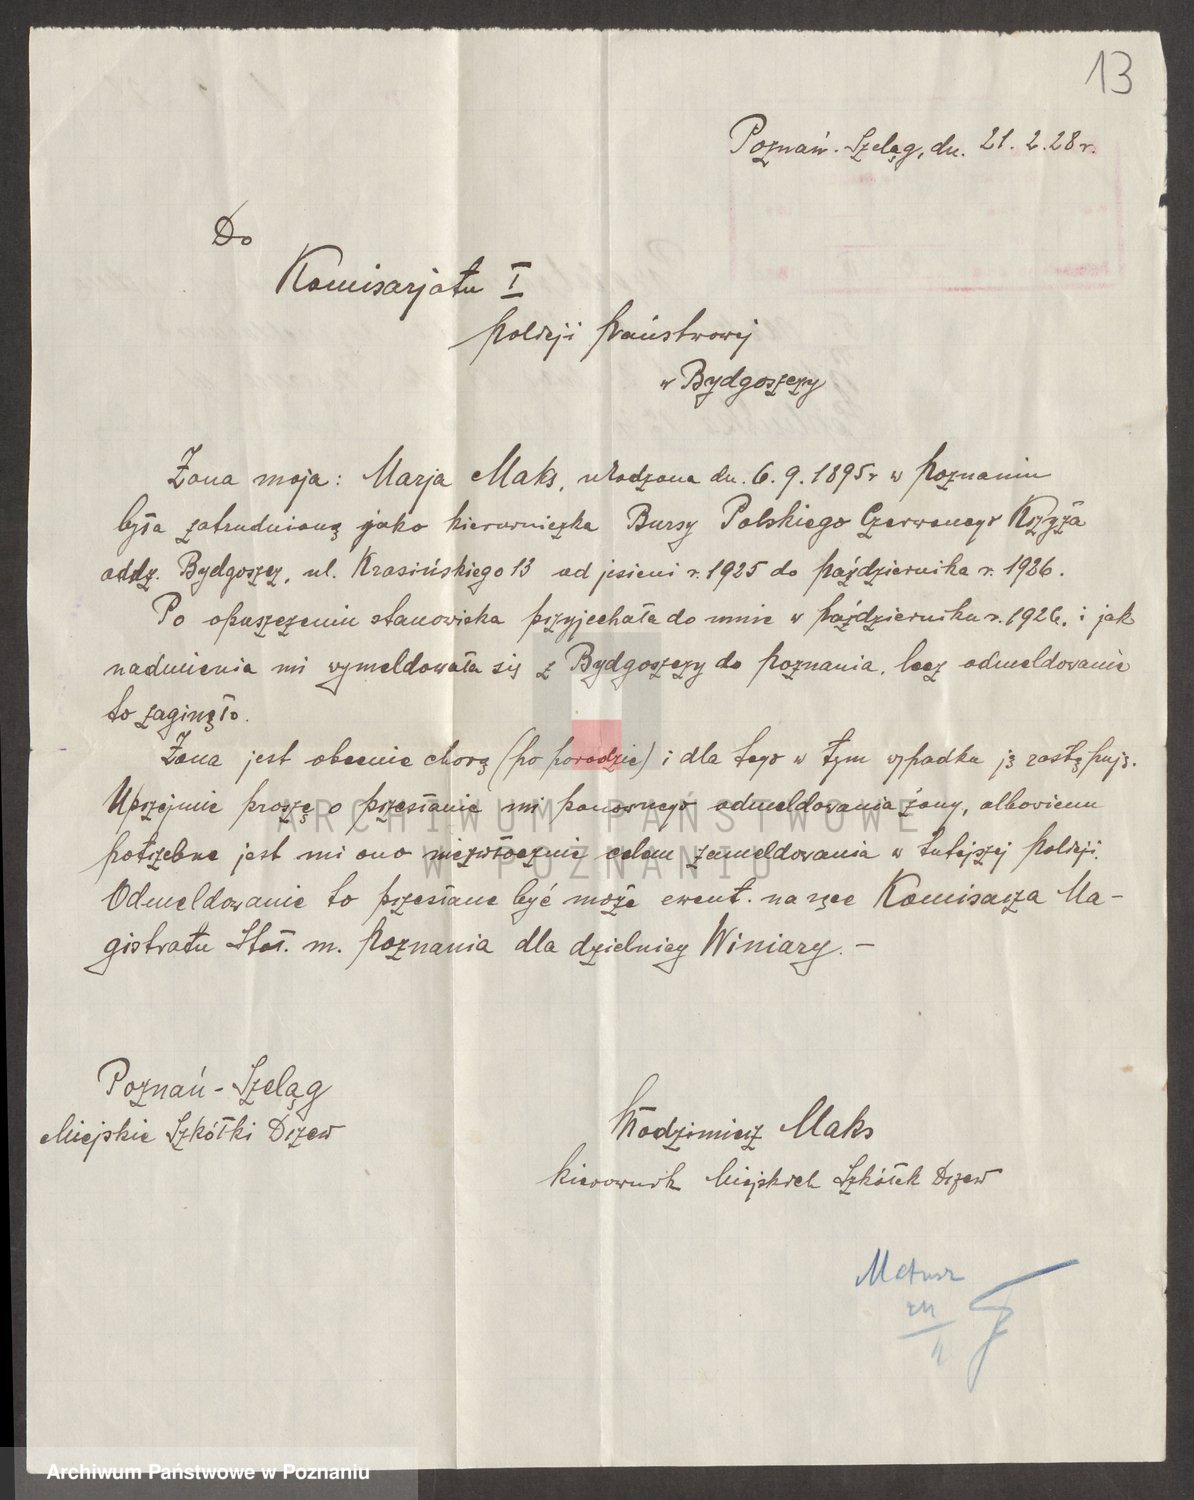 13
Poznań-Szeląg, dn. 21.2.28 r.
Do
Komisarjatu I
Policji Państwowej
w Bydgoszczy
Żona moja: Marja Maks, urodzona dn. 6.9.1895 r w Poznaniu
była zatrudnioną jako kierowniczka Bursy Polskiego Czerwonego Krzyża
oddz. Bydgoszcz, ul. Krasińskiego 13 od jesieni r. 1925 do października r. 1926.
Po opuszczeniu stanowiska przyjechała do mnie w październiku r. 1926. i jak
nadmienia mi wymeldowała się z Bydgoszczy do Poznania, lecz odmeldowanie
to zaginęło.
Żona jest obecnie chorą (po porodzie) i dla tego w tym wypadku ją zastępuję.
Uprzejmie proszę o przesłanie mi ponownego odmeldowania żony, albowiem
potrzebne jest mi ono niezwłocznie celem zameldowania w tutejszej policji.
Odmeldowanie to przesłane być może ewent. na ręce Komisarza Ma-
gistratu Stoł. m. Poznania dla dzielnicy Winiary. -
Poznań - Szeląg
Miejskie Szkółki Drzew
Włodzimierz Maks
kierownik Miejskich Szkółek Drzew
ARCHIWUM PAŃSTWOWE
W POZNANIU
Archiwum Państwowe w Poznaniu